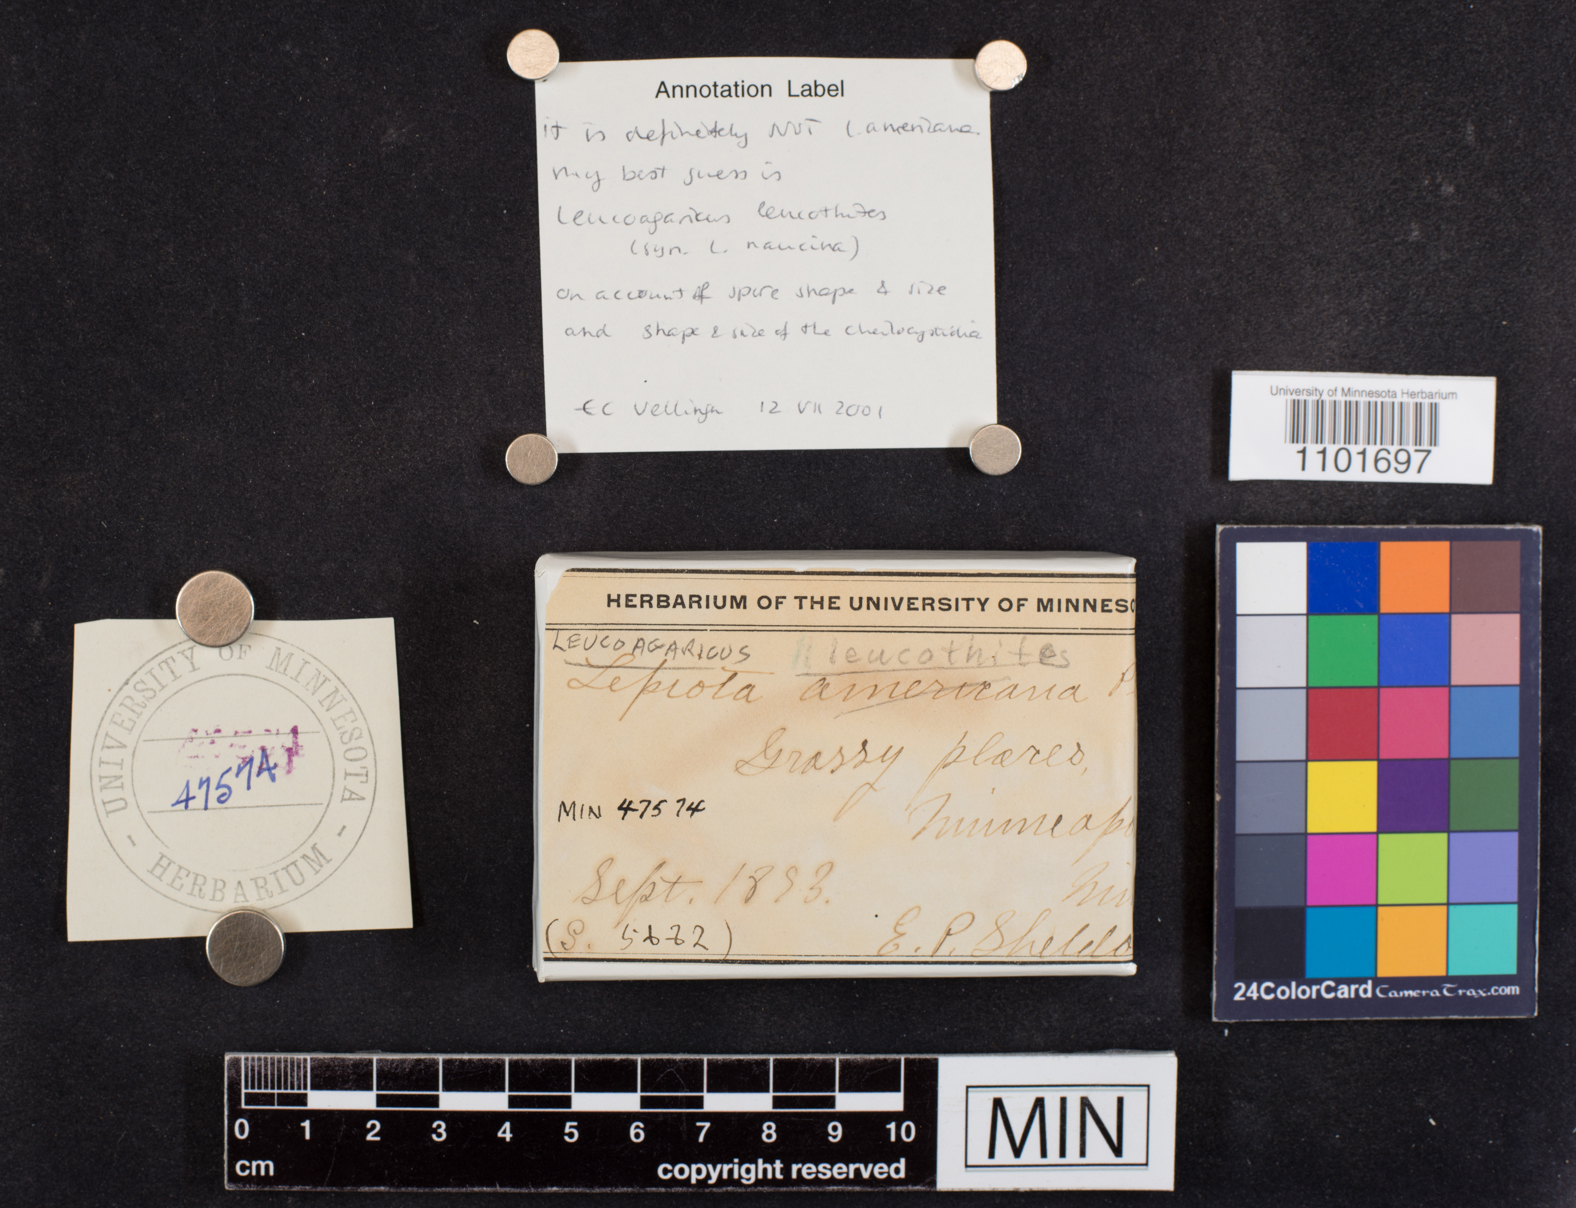 Annotation Label
it is definitely NOT L. americana.
my best guess is
Leucoagaricus leucothites
(syn. L. naucina)
on account of spore shape & size
and shape & size of the cheilocystidia
EC Vellinga 12 VII 2001
University of Minnesota Herbarium
1101697
HERBARIUM OF THE UNIVERSITY OF MINNESO
LEUCOAGARICUS leucothites
Lepiota americana P
Grassy places,
MIN 47574
Minneap
Sept. 1893.
Min
(S. 5632)
E. P. Sheldo
UNIVERSITY OF MINNESOTA
47574
- HERBARIUM -
24ColorCard CameraTrax.com
0 1 2 3 4 5 6 7 8 9 10
cm
copyright reserved
MIN